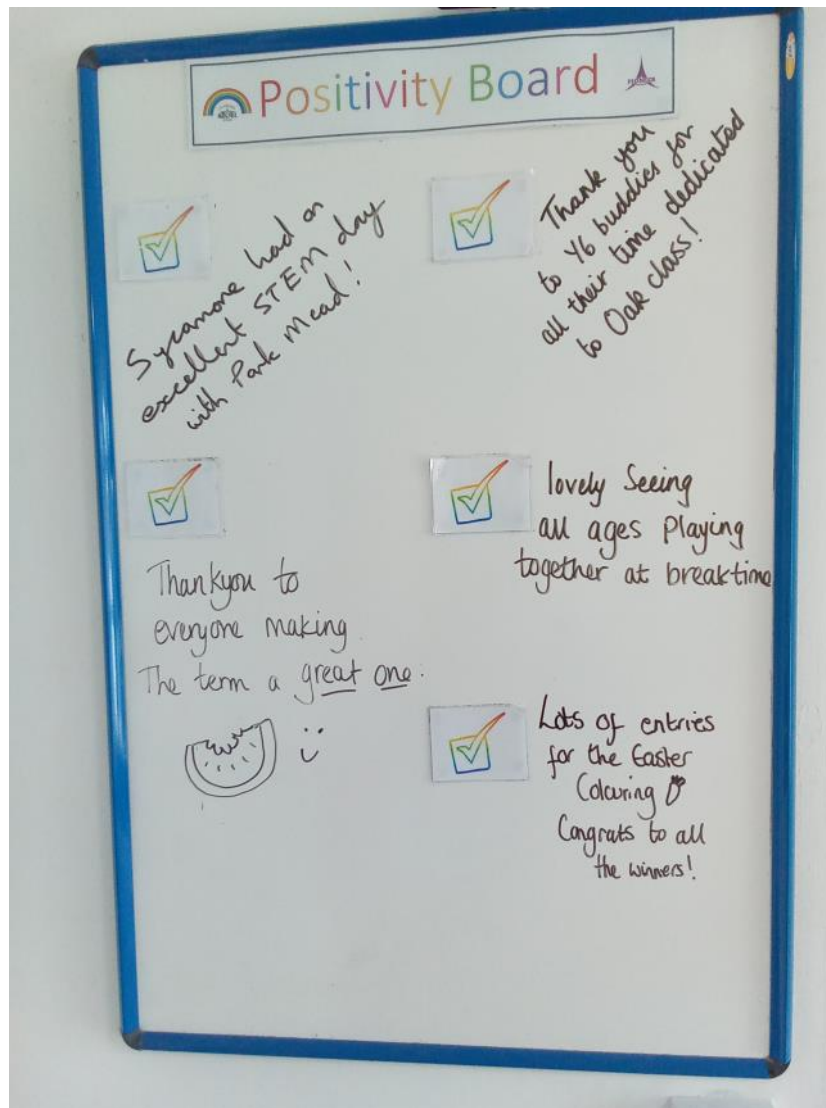 Positivity Board
Sycamore had an
excellent STEM day
with Park Mead!
Thank you
to Y6 buddies for
all their time dedicated
to Oak class!
Thankyou to
everyone making
The term a great one.
lovely Seeing
all ages Playing
together at breaktime
Lots of entries
for the Easter
Colouring
Congrats to all
the winners!